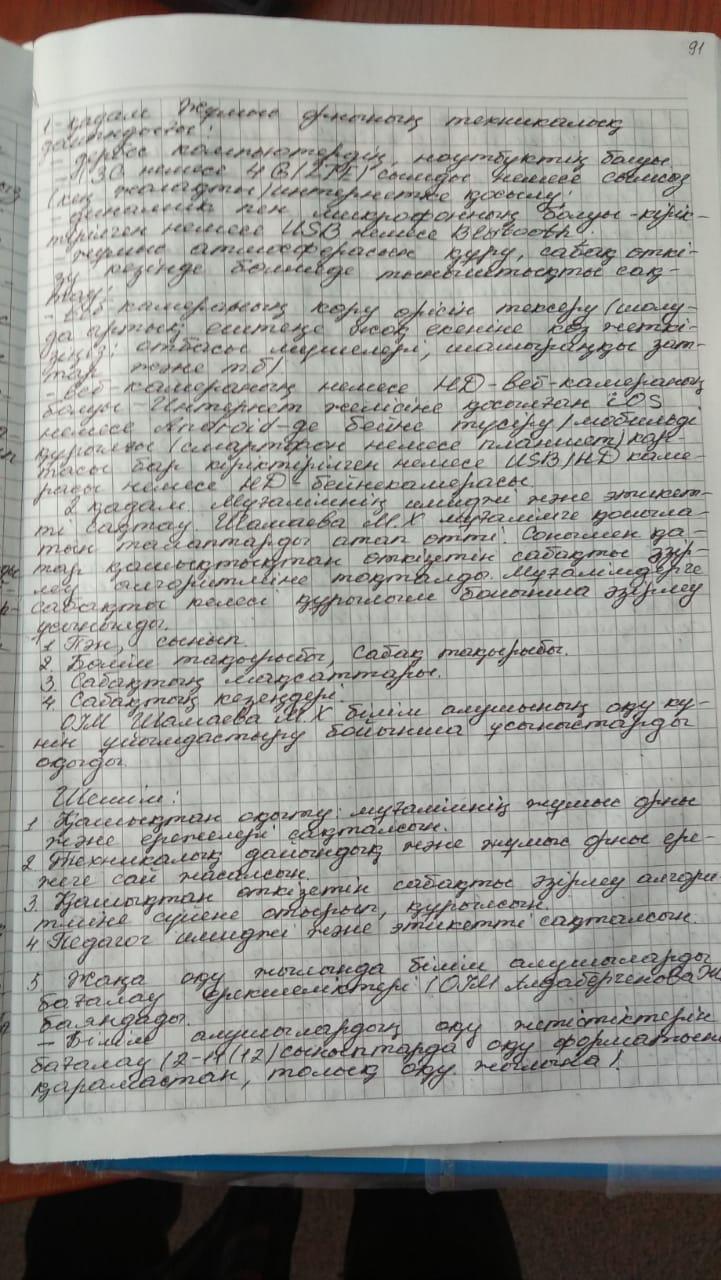 91
1-қадам Жұмыс орнының техникалық
дайындығы:
- дербес компьютердің, ноутбуктің болуы
- 3G немесе 4G/LTE/сымды немесе сымсыз
(кең жолақты) интернетке қосылу;
- динамик пен микрофонның болуы - кірік-
тірілген немесе USB немесе Bluetooth.
- жұмыс атмосферасын құру, сабақ өткі-
зу кезінде бөлмеде тыныштықты сақ-
тау;
- веб-камераның көру өрісін тексеру (шолу-
да артық ештеңе жоқ екеніне көз жеткі-
зіңіз: отбасы мүшелері, шашыраңқы зат-
тар және т.б)
- веб-камераның немесе HD-веб-камераның
болуы - Интернет желісіне қосылған iOS
немесе Android-де бейне түсіру/мобильді
құрылғы (смартфон немесе планшет) кар-
тасы бар кіріктірілген немесе USB/HD каме-
расы немесе HD бейнекамерасы.
2 қадам. Мұғалімнің имиджі және этикет-
ті сақтау. Шамаева М.Х мұғалімге қойыла-
тын талаптарды атап өтті. Сонымен қа-
тар қашықтықтан өткізетін сабақты әзір-
леу алгоритміне тоқталды. Мұғалімдерге
сабақты келесі құрылым бойынша әзірлеу
ұсынылды.
1. Пән, сынып.
2. Бөлім тақырыбы, сабақ тақырыбы.
3. Сабақтың мақсаттары.
4. Сабақтың кезеңдері.
ОІМ Шамаева М.Х білім алушының оқу кү-
нін ұйымдастыру бойынша ұсыныстарды
оқыды.
Шешім:
1 Қашықтан оқыту: мұғалімнің жұмыс орны
және ережелері сақталсын.
2 Техникалық дайындық және жұмыс орны ере-
жеге сай жасалсын.
3. Қашықтан өткізетін сабақты әзірлеу алгори-
тміне сүйене отырып, құрылсын.
4 Педагог имиджі және этикетті сақталсын.
5 Жаңа оқу жылында білім алушыларды
бағалау ерекшеліктері (ОІМ Алдабергенова Ж
баяндады.
- Білім алушылардың оқу жетістіктерін
бағалау (2-11(12) сыныптарда оқу форматына
қарамастан, толық оқу жылына!